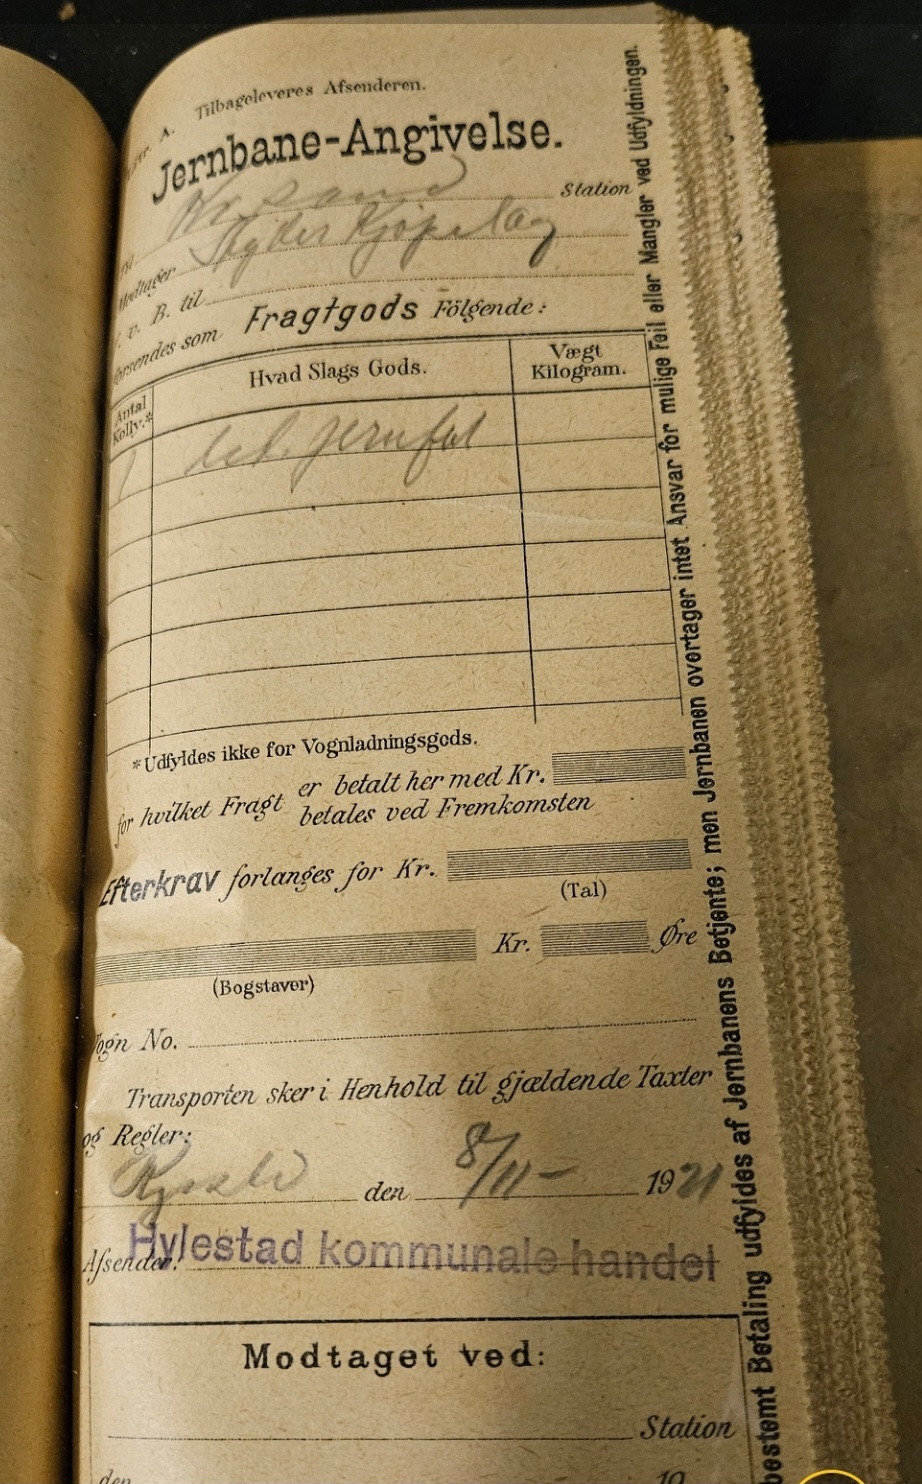 A. Tilbageleveres Afsenderen.
Jernbane-Angivelse.
Kr.sand Station
Modtager Agder Kjøpelag
v. B. til
forsendes som Fragtgods Følgende:
Antal Kolly.* Hvad Slags Gods. Vægt Kilogram.
1 jernfat
*Udfyldes ikke for Vognladningsgods.
for hvilket Fragt er betalt her med Kr.
betales ved Fremkomsten
Efterkrav forlanges for Kr.
(Tal)
Kr. Øre
(Bogstaver)
Vogn No.
Transporten sker i Henhold til gjældende Taxter
og Regler:
den 8/11- 1921
Afsender: Hylestad kommunale handel
Modtaget ved:
Station
den 19
bestemt Betaling udfyldes af Jernbanens Betjente; men Jernbanen overtager intet Ansvar for mulige Feil eller Mangler ved Udfyldningen.